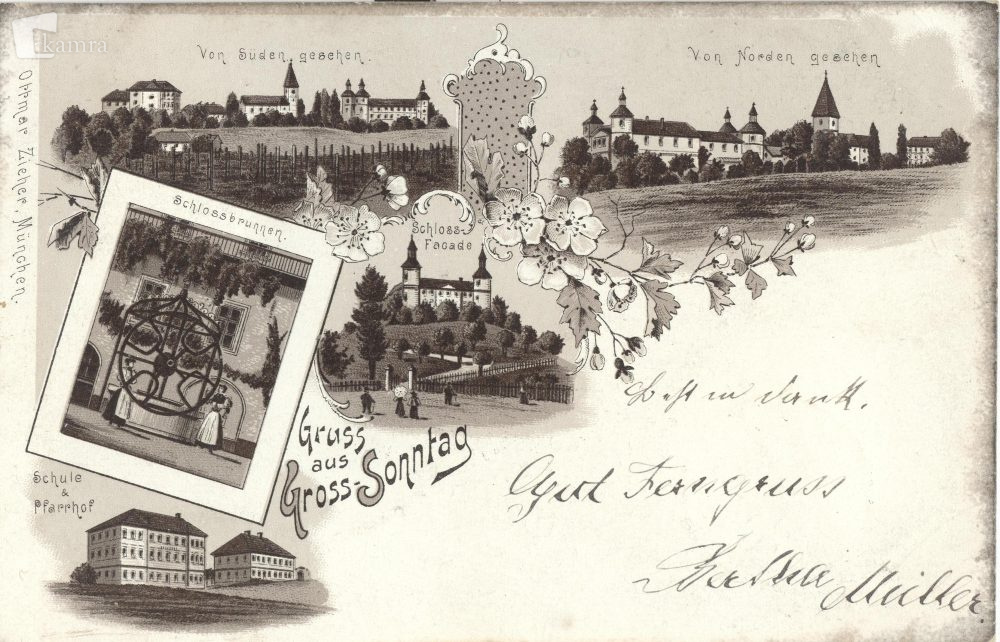 kamra
Von Süden gesehen.
Von Norden gesehen
Ottmar Zieher, München.
Schlossbrunnen.
Schloss-
Facade
Gruss
aus
Gross-Sonntag
Schule
&
Pfarrhof
dank.
Ferngruss
Müller